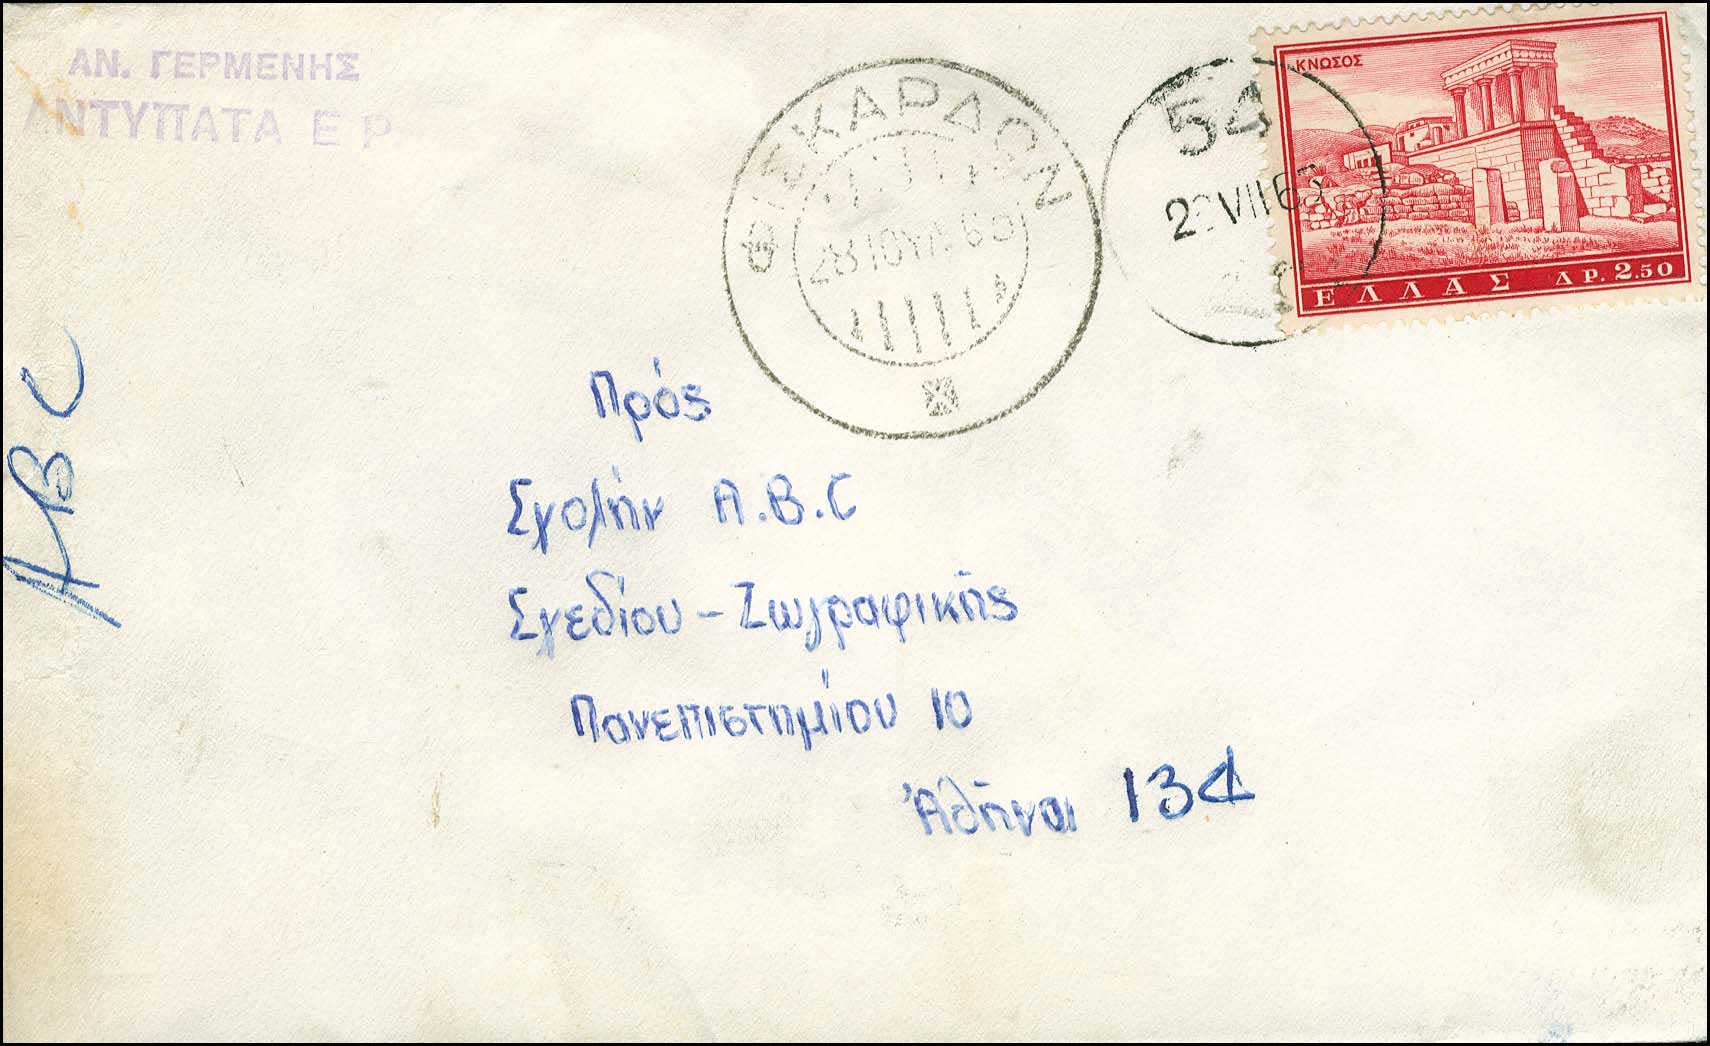 ΑΝ. ΓΕΡΜΕΝΗΣ
ΑΝΤΥΠΑΤΑ ΕΡ.
ΦΙΣΚΑΡΔΟΝ
28 ΙΟΥΛ 63
54
VII 63
ΚΝΩΣΟΣ
ΕΛΛΑΣ ΔΡ. 2.50
ABC
Πρός
Σχολήν A.B.C
Σχεδίου - Ζωγραφικῆς
Πανεπιστημίου 10
Ἀθῆναι 134